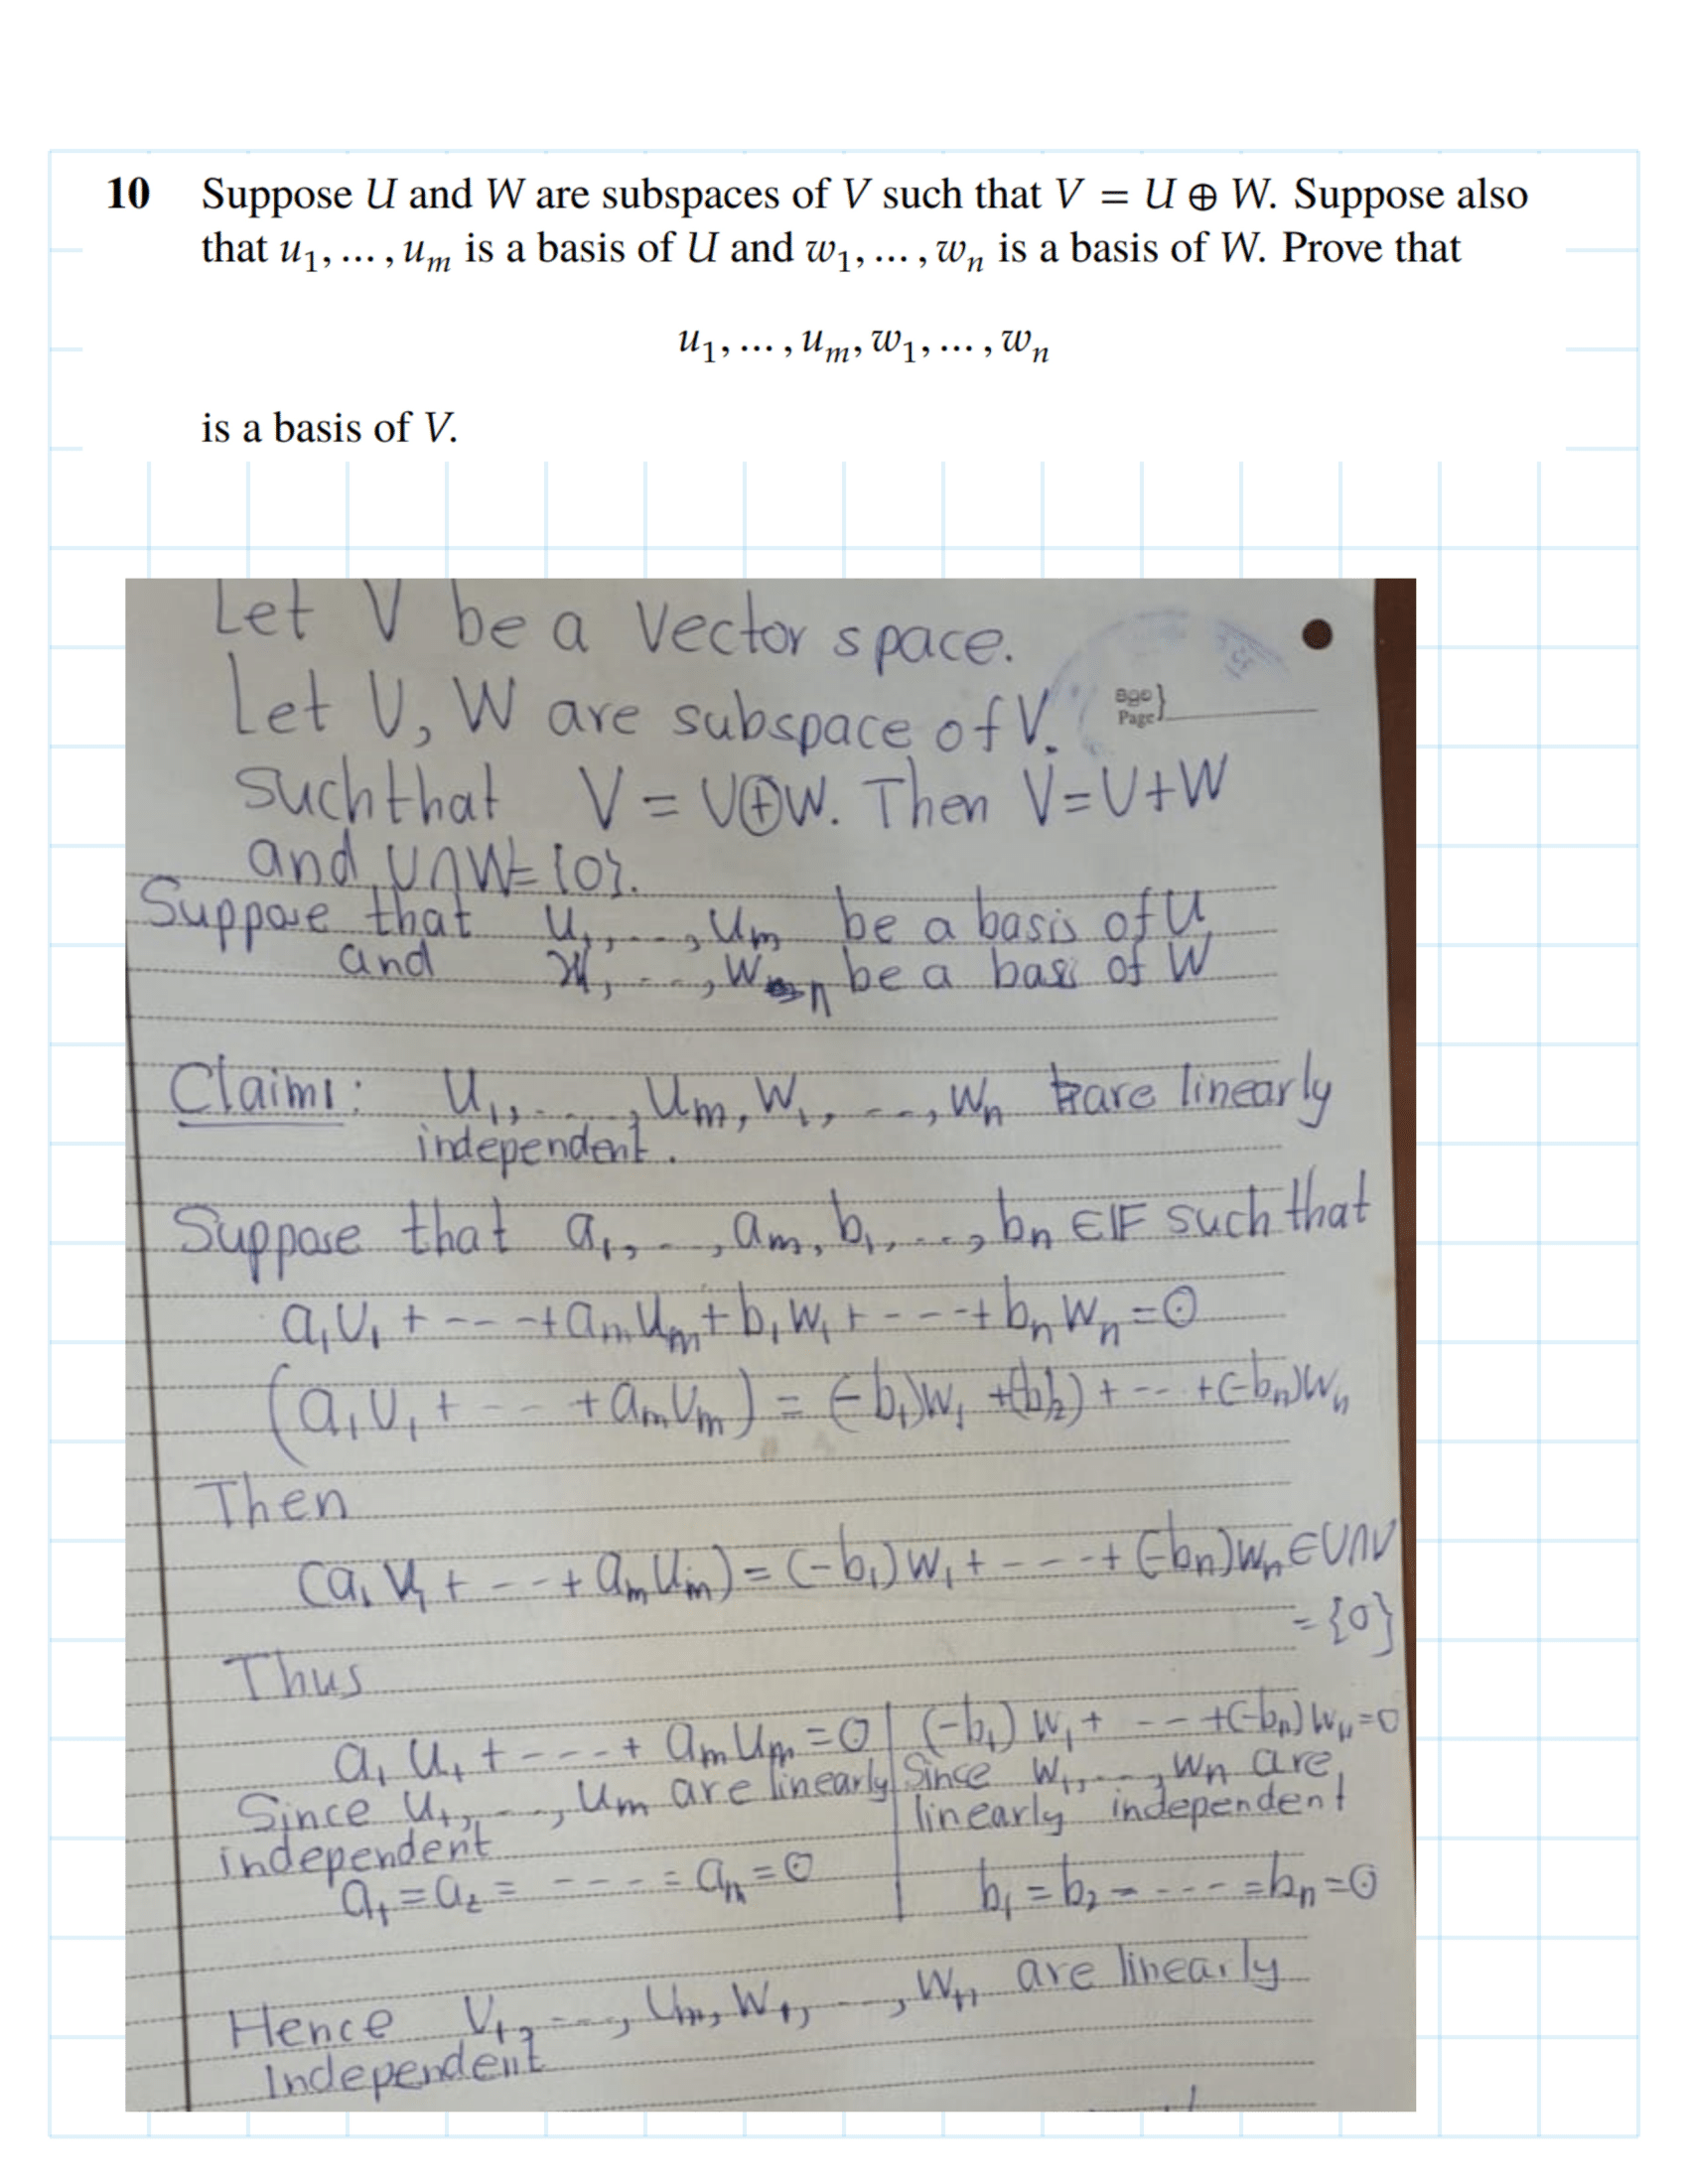 10 Suppose U and W are subspaces of V such that V = U ⊕ W. Suppose also
that u₁, … , uₘ is a basis of U and w₁, … , wₙ is a basis of W. Prove that
u₁, … , uₘ, w₁, … , wₙ
is a basis of V.
Let V be a Vector space.
Let U, W are subspace of V.
Page
such that V = U⊕W. Then V=U+W
and U∩W={0}.
Suppose that u₁, ..., uₘ be a basis of U,
and , ..., wₙ be a basi of W
Claim1: u₁, ..., uₘ, w₁, ..., wₙ are linearly
independent.
Suppose that a₁, ..., aₘ, b₁, ..., bₙ ∈ 𝔽 such that
a₁u₁ + --- + aₘuₘ + b₁w₁ + --- + bₙwₙ = 0
(a₁u₁ + --- + aₘuₘ) = (-b₁)w₁ + (-b₂) + -- + (-bₙ)wₙ
Then
(a₁u₁ + --- + aₘuₘ) = (-b₁)w₁ + --- + (-bₙ)wₙ ∈ U∩V
= {0}
Thus
a₁u₁ + --- + aₘuₘ = 0
Since u₁, ..., uₘ are linearly
independent
a₁ = a₂ = ---- = aₙ = 0
(-b₁)w₁ + --- + (-bₙ)wₙ = 0
Since w₁, ..., wₙ are
linearly independent
b₁ = b₂ = ---- = bₙ = 0
Hence u₁, ..., uₘ, w₁, ..., wₙ are linearly
Independent